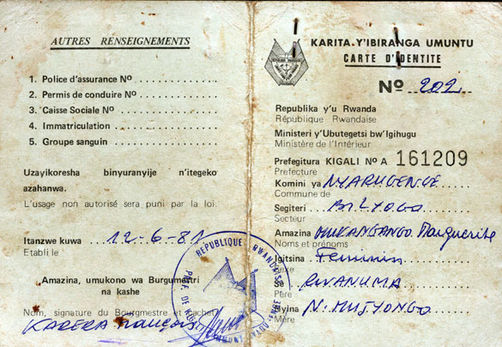 AUTRES RENSEIGNEMENTS
1. Police d'assurance Nº
2. Permis de conduire Nº
3. Caisse Sociale Nº
4. Immatriculation
5. Groupe sanguin
Uzayikoresha binyuranyije n'itegeko
azahanwa.
L'usage non autorisé sera puni par la loi.
Itanzwe kuwa 12-6-81
Etabli le
Amazina, umukono wa Burgumestri
na kashe
Nom, signature du Bourgmestre et cachet
KARERA François
REPUBLIQUE RWANDAISE
KARITA Y'IBIRANGA UMUNTU
CARTE D'IDENTITE
Nº 202
Republika y'u Rwanda
République Rwandaise
Ministeri y'Ubutegetsi bw'Igihugu
Ministère de l'Intérieur
Prefegitura KIGALI Nº A 161209
Prefecture
Komini ya NYARUGENGE
Commune de
Segiteri BILYOGO
Secteur
Amazina MUKANGANGO Marguerite
Noms et prénoms
Igitsina Feminin
Se RWANUMA
Père
Nyina N. MUJYONGO
Mère